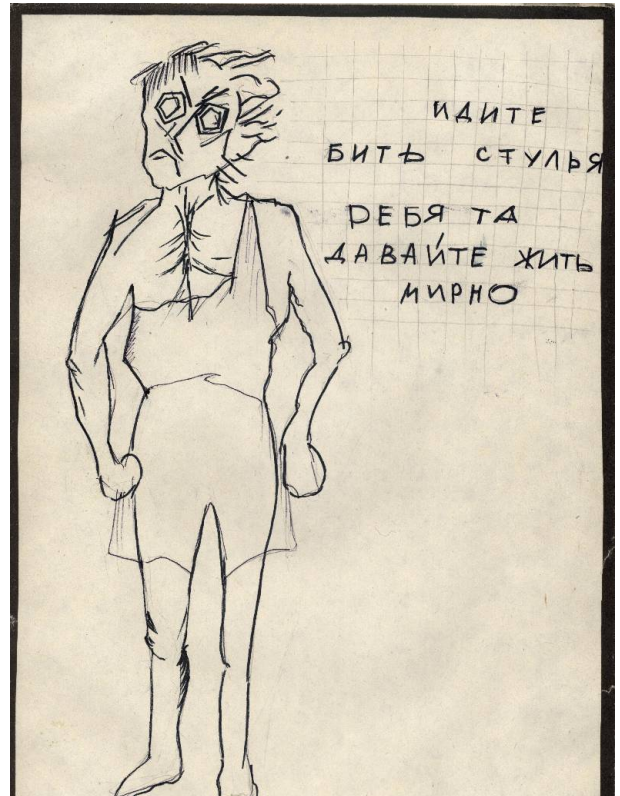 ИДИТЕ
БИТЬ СТУЛЬЯ
РЕБЯ ТА
ДАВАЙТЕ ЖИТЬ
МИРНО